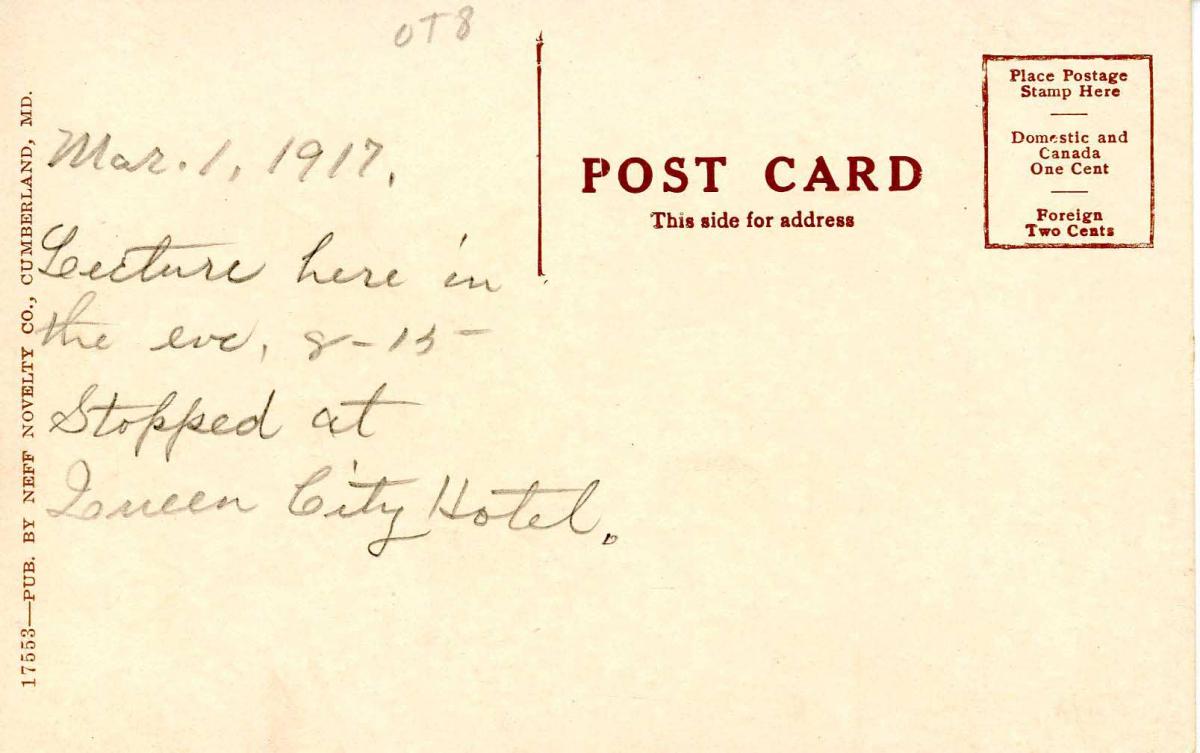 OT8
Mar. 1, 1917.
Lecture here in
the eve, 8-15
Stopped at
Queen City Hotel.
17553—PUB. BY NEFF NOVELTY CO., CUMBERLAND, MD.
POST CARD
This side for address
Place Postage
Stamp Here
Domestic and
Canada
One Cent
Foreign
Two Cents